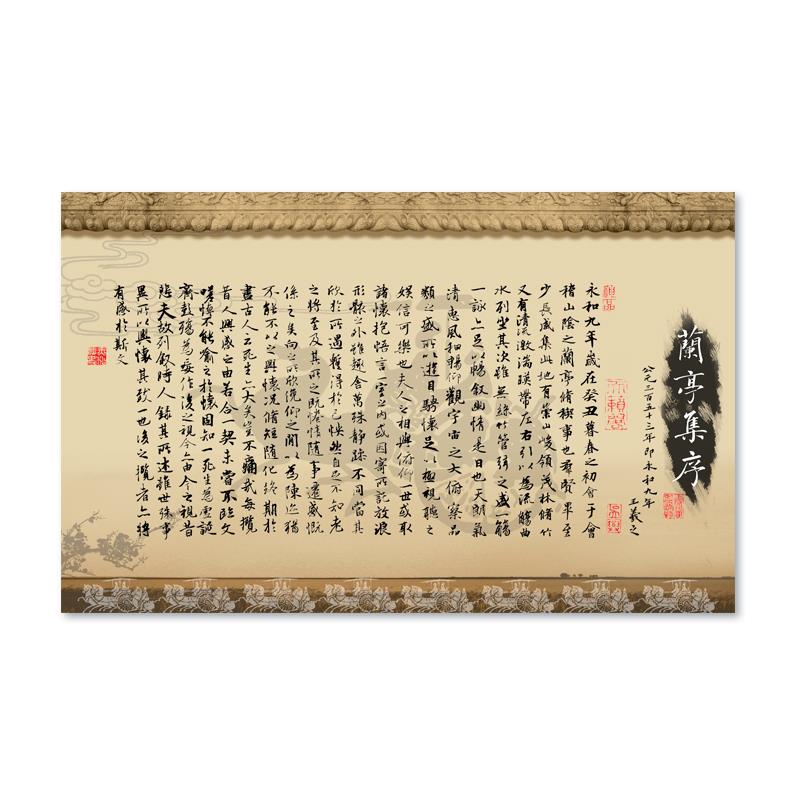 蘭亭集序
公元三百五十三年即永和九年
王羲之
永和九年歲在癸丑暮春之初會于會
稽山陰之蘭亭脩稧事也群賢畢至
少長咸集此地有崇山峻領茂林脩竹
又有清流激湍暎帶左右引以為流觴曲
水列坐其次雖無絲竹管弦之盛一觴
一詠亦足以暢敘幽情是日也天朗氣
清惠風和暢仰觀宇宙之大俯察品
類之盛所以遊目騁懷足以極視聽之
娛信可樂也夫人之相與俯仰一世或取
諸懷抱悟言一室之內或因寄所託放浪
形骸之外雖趣舍萬殊靜躁不同當其
欣於所遇暫得於己怏然自足不知老
之將至及其所之既惓情隨事遷感慨
係之矣向之所欣俛仰之閒以為陳迹猶
不能不以之興懷況脩短隨化終期於
盡古人云死生亦大矣豈不痛哉每攬
昔人興感之由若合一契未嘗不臨文
嗟悼不能喻之於懷固知一死生為虛誕
齊彭殤為妄作後之視今亦由今之視昔
悲夫故列敘時人錄其所述雖世殊事
異所以興懷其致一也後之攬者亦將
有感於斯文